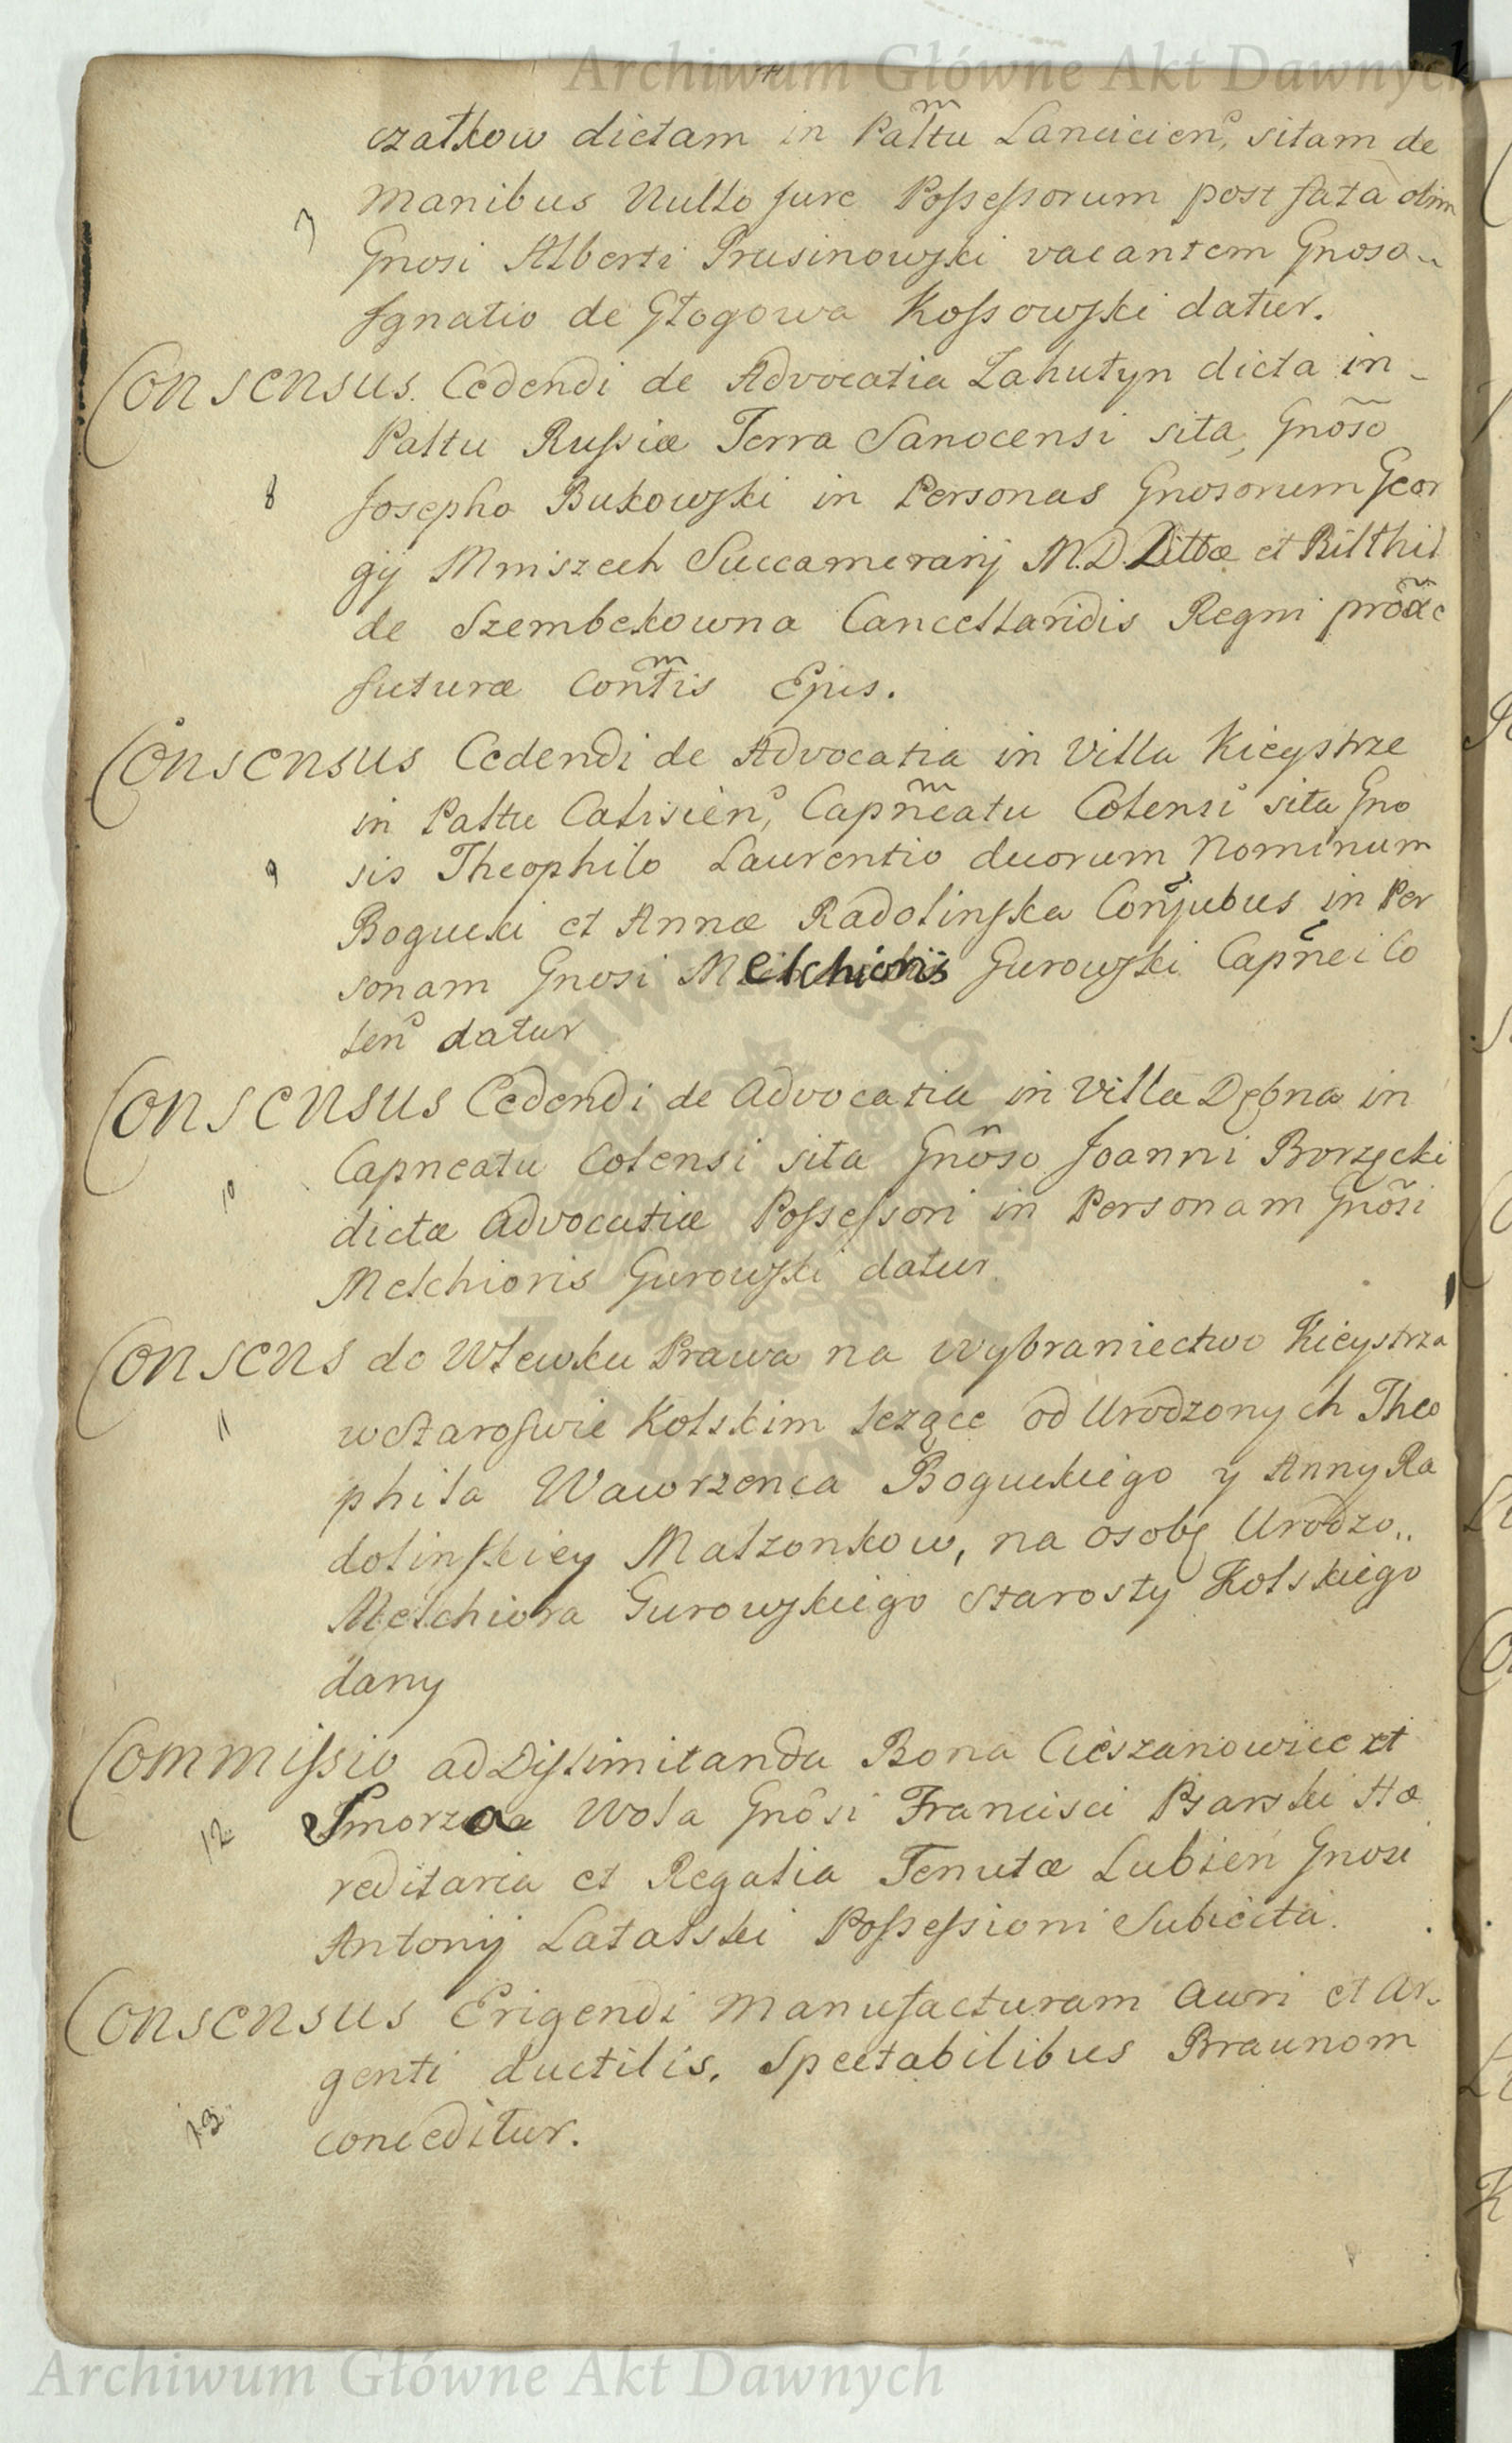 Archiwum Główne Akt Dawnych
czatkow dictam in Palttu Lancicien, sitam de
7 manibus Nullo Jure Possessorum post fata olim
Gnosi Alberti Prusinowski vacantem Gnoso
Ignatio de Głogowa Kossowski datur.
Consensus Cedendi de Advocatia Zahutyn dicta in
Paltu Russiæ Terra Sanocensi sita, Gnõso
8 Josepho Bukowski in Personas Gnosorum Geor
gij Mniszech Succamerarij M.D. Littæ et Bilthil
de Szembekowna Cancellaridis Regni proac
futuræ Contis Ejus.
Consensus Cedendi de Advocatia in Villa Kieystrze
in Paltu Calisien, Capneatu Colensi sita Gno
9 sis Theophilo Laurentio duorum Nominum
Bogucki et Annæ Radolinska Conjubus in Per
sonam Gnosi Melchioris Gurowski Capnei Co
len datur
Consensus Cedendi de Advocatia in Villa Dębna in
Capneatu Colensi sita Gnõso Joanni Borzęcki
10 dictæ Advocatiæ Possessori in Personam Gnõsi
Melchioris Gurowski datur
Consens do Wlewku Prawa na wybraniectwo Kieystrza
11 w Starostwie Kolskim lezące od Urodzonych Theo
phila Wawrzenca Boguckiego y Anny Ra
dolinskiey Malzonkow, na osobę Urodzo..
Melchiora Gurowskiego Starosty Kolskiego
dany
Commissio ad Dislimitanda Bona Cieszanowice et
12. Smorza Wola Gnôsi Francisci Psarski Hæ
reditaria et Regalia Tenutæ Lubień Gnosi
Antonij Latalski Possessioni Subiecta.
Consensus Erigendi Manufacturam Auri et Ar
genti ductilis, Spectabilibus Braunom
13. conceditur.
Archiwum Główne Akt Dawnych